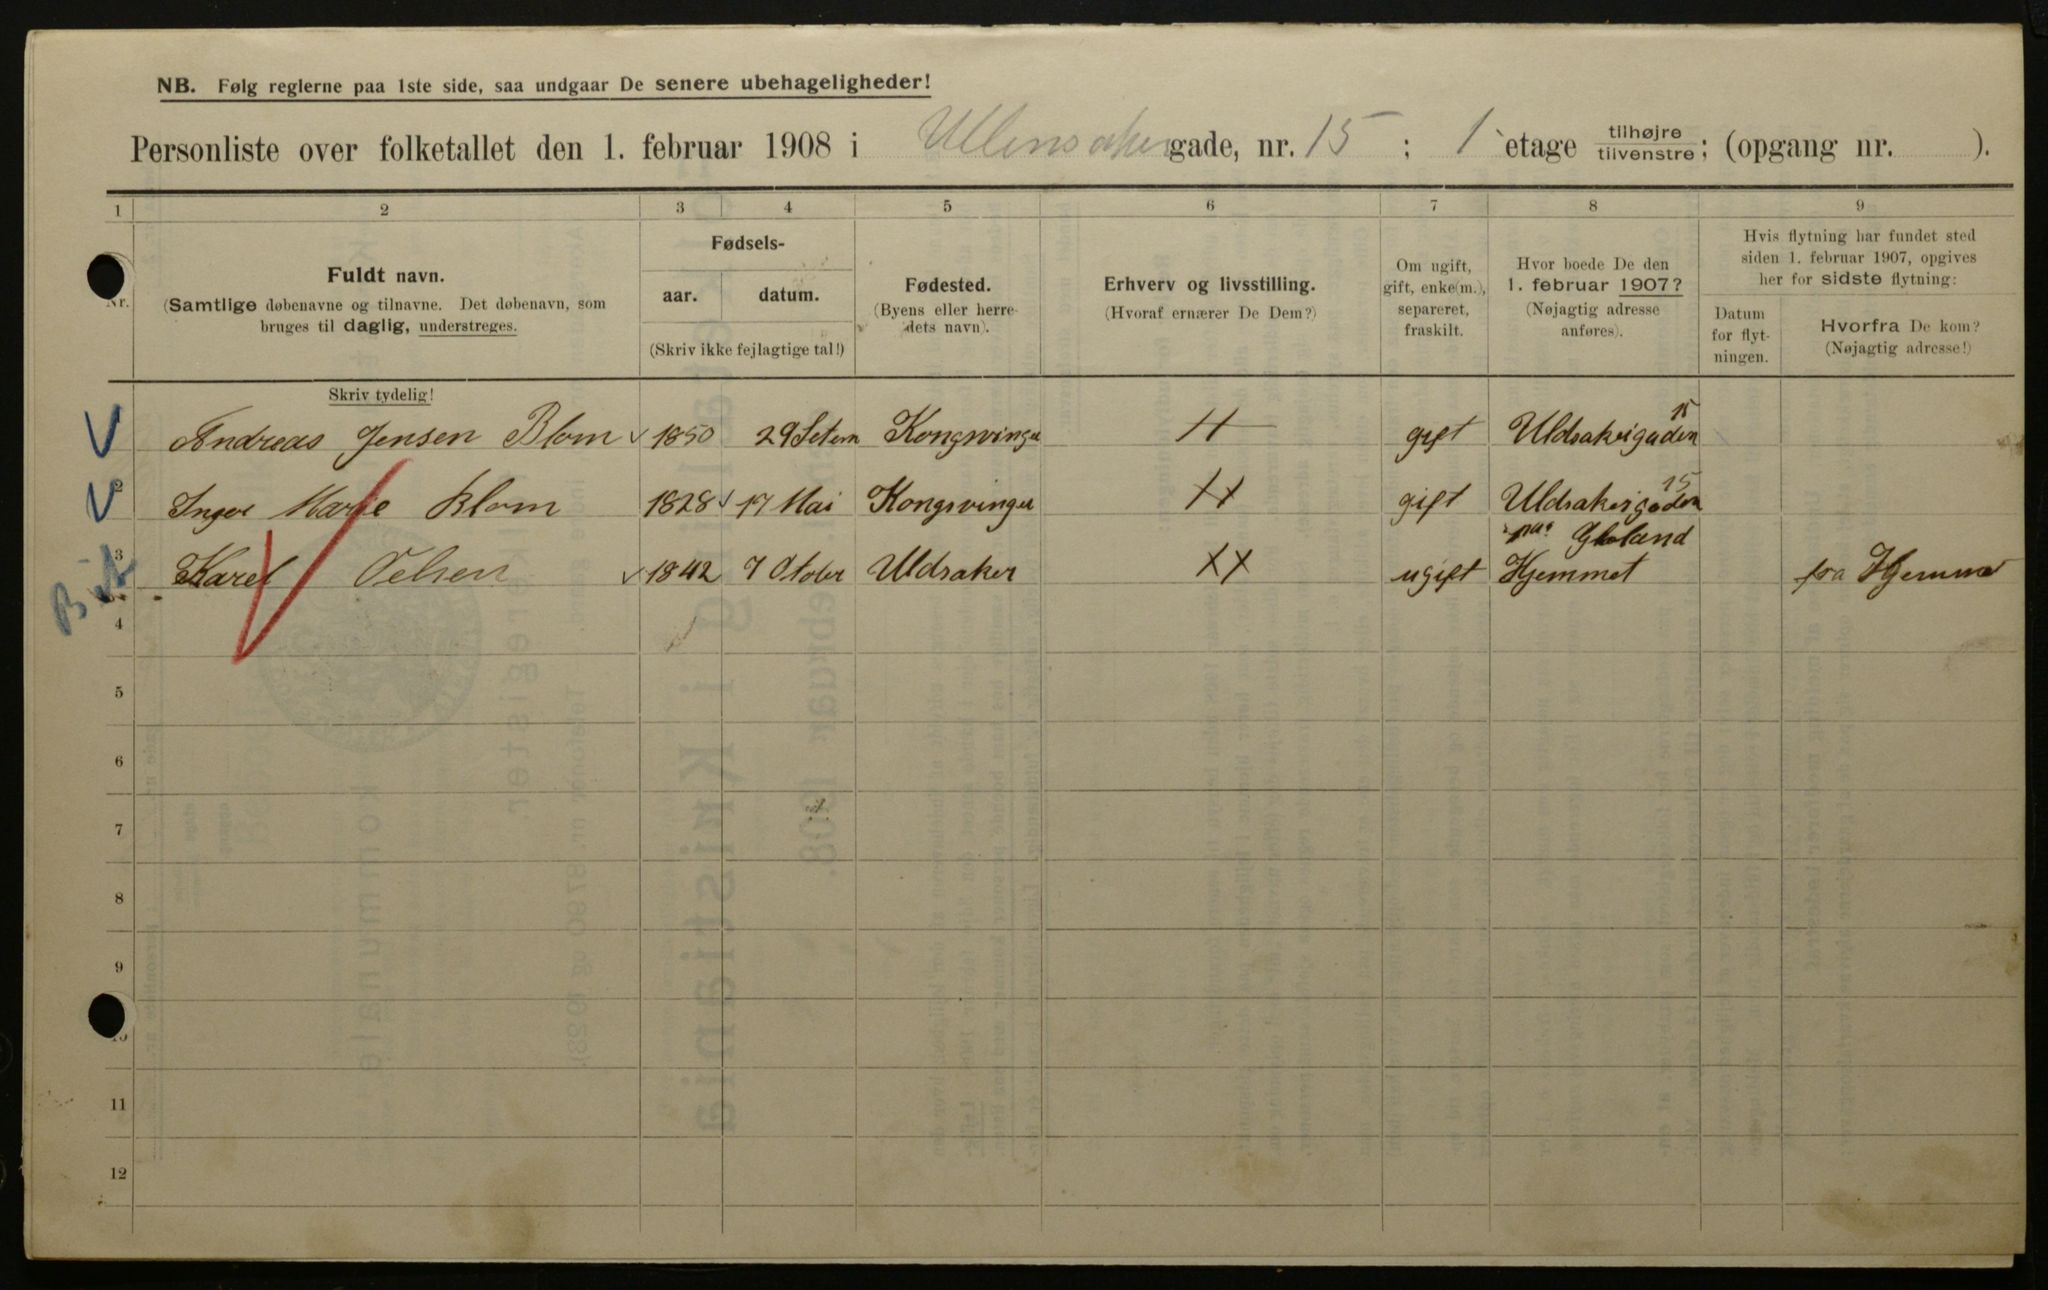 NB. Følg reglerne paa 1ste side, saa undgaar De senere ubehageligheder!
Personliste over folketallet den 1. februar 1908 i Ullensaker gade, nr. 15 ; 1 etage tilhøjre tilvenstre; (opgang nr. ).
1 2 3 4 5 6 7 8 9
Nr.
Fuldt navn.
(Samtlige døbenavne og tilnavne. Det døbenavn, som
bruges til daglig, understreges.
Fødsels-
aar. datum.
(Skriv ikke fejlagtige tal!)
Fødested.
(Byens eller herre-
dets navn).
Erhverv og livsstilling.
(Hvoraf ernærer De Dem?)
Om ugift,
gift, enke(m.),
separeret,
fraskilt.
Hvor boede De den
1. februar 1907?
(Nøjagtig adresse
anføres).
Hvis flytning har fundet sted
siden 1. februar 1907, opgives
her for sidste flytning:
Datum
for flyt-
ningen.
Hvorfra De kom?
(Nøjagtig adresse!)
Skriv tydelig!
Andreas Jensen Blom 1850 29 Setem Kongsvinger gift Uldsakeigaden 15
2 Inger Marie Blom 1828 17 Mai Kongsvinger gift Uldsakeigaden 15
3 Karel Oelsen 1842 7 Otober Uldsaker XX ugift Hjemmet fra Hjemme
4
5
6
7
8
9
10
11
12